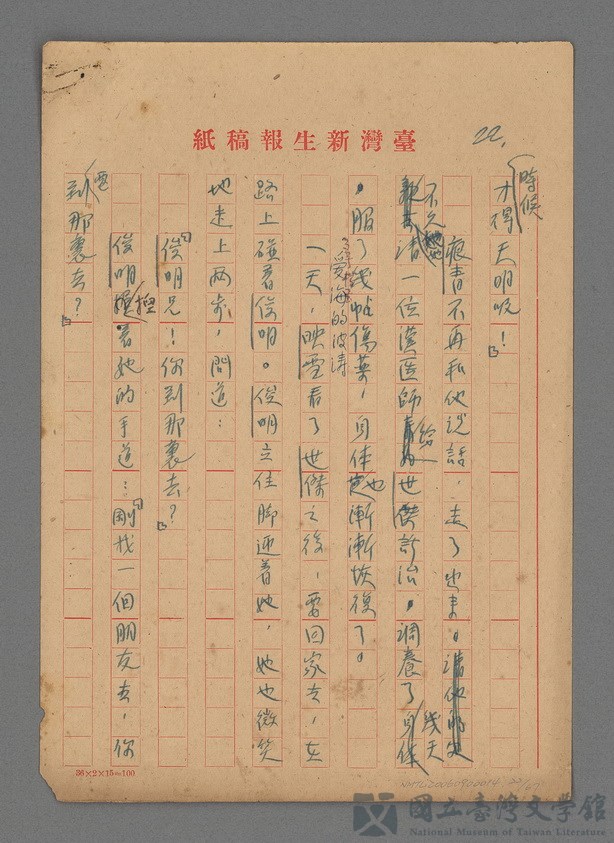 臺灣新生報稿紙
22.
時候
才碍天明呢!」
痕青不再和他说話,走了出来。請他的父
親去請一位漢医師給世傑診治。調養了幾天身体
不久
,服了幾帖傷藥,身体也漸漸恢復了。
愛海的波濤
一天,映雪看了世傑之後,要回家去,在
路上碰着俊明。俊明立住脚迎着她,她也微笑
地走上两步,問道:
「俊明兄!你到那裏去?」
俊明握着她的手道:「剛找一個朋友去,你
要到那裏去?」
36×2×15=100
國立臺灣文學館
National Museum of Taiwan Literature